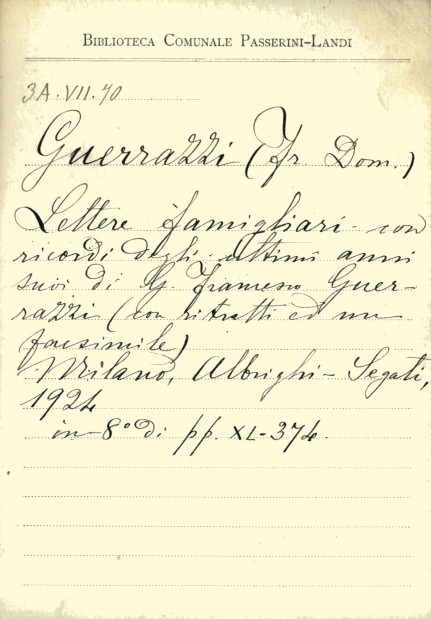 BIBLIOTECA COMUNALE PASSERINI-LANDI
3A.VII.70
Guerrazzi (Fr. Dom.)
Lettere famigliari con
ricordi degli ultimi anni
suoi di G. Francesco Guer-
razzi (con ritratti ed un
facsimile)
Milano, Albrighi-Segati,
1924
in-8° di pp. XL-374.